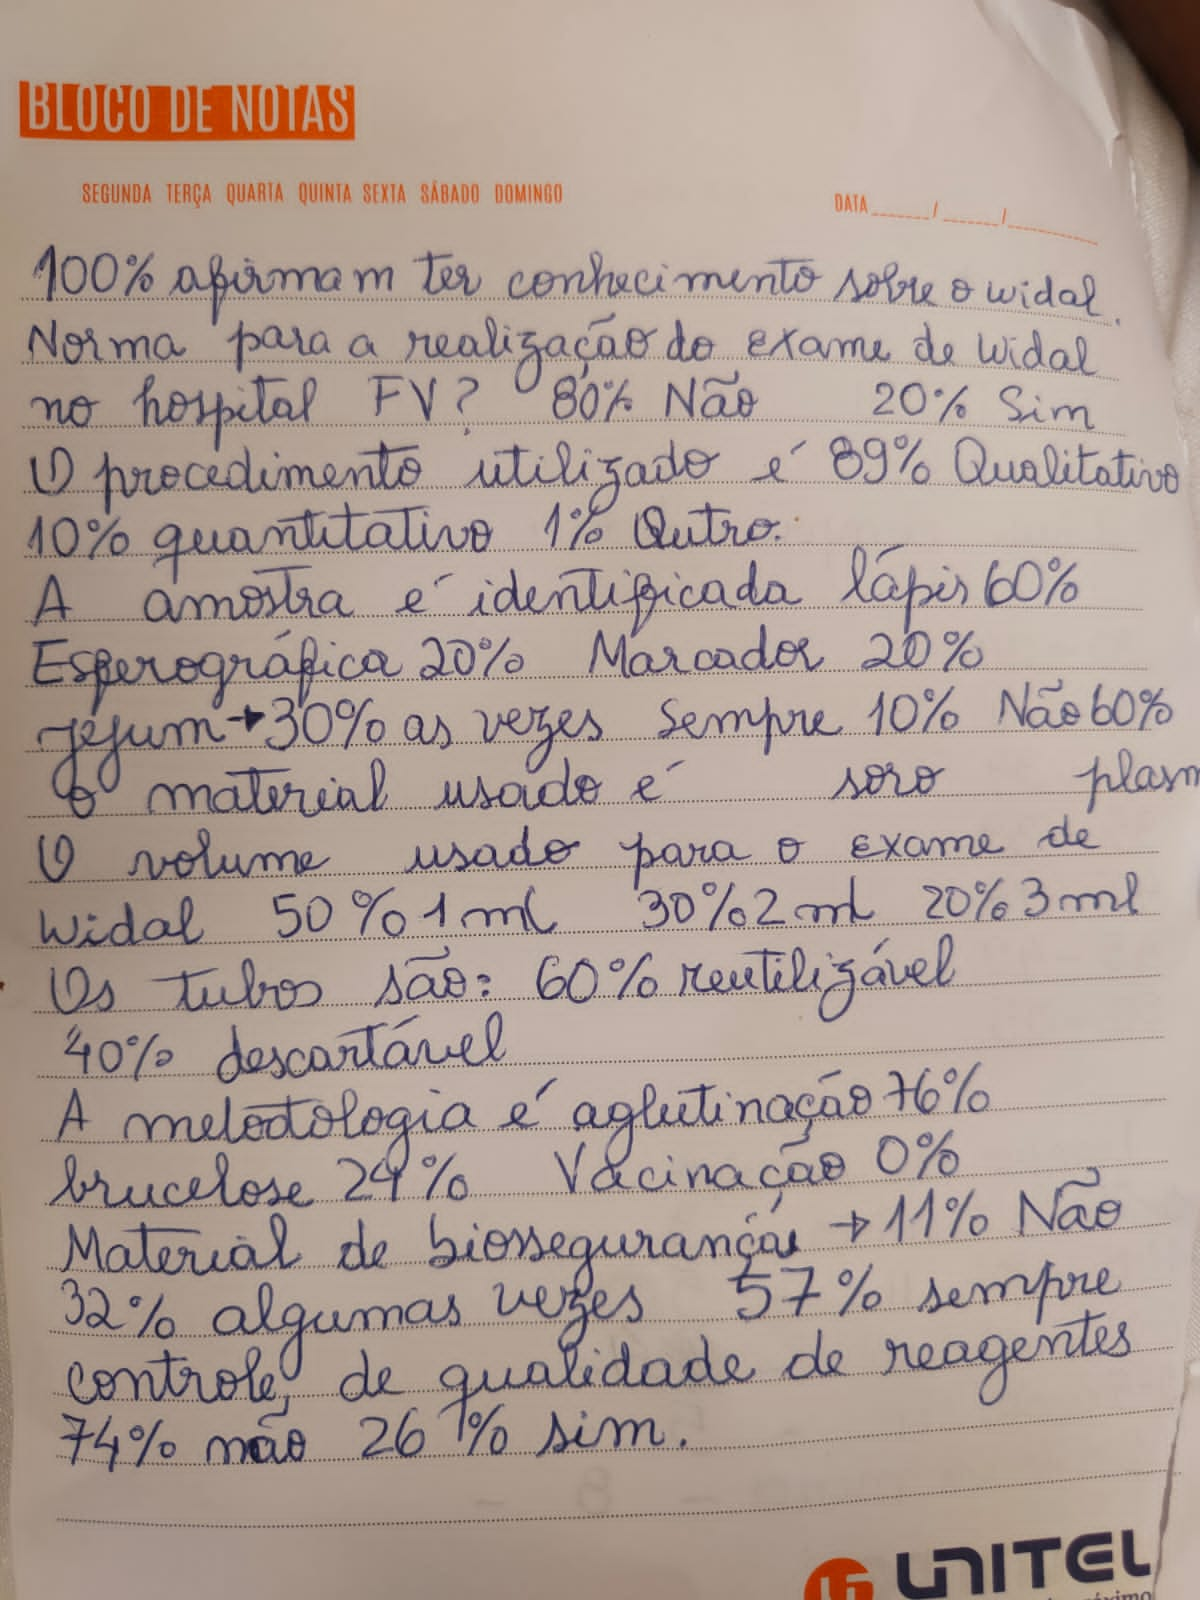 BLOCO DE NOTAS
SEGUNDA TERÇA QUARTA QUINTA SEXTA SÁBADO DOMINGO
DATA ______/______/______
100% afirmam ter conhecimento sobre o widal.
Norma para a realização do exame de widal
no hospital FV? 80% Não 20% Sim
O procedimento utilizado é 89% Qualitativo
10% quantitativo 1% Outro.
A amostra é identificada lápis 60%
Esferográfica 20% Marcador 20%
jejum→30% as vezes Sempre 10% Não 60%
o material usado é soro plasm
O volume usado para o exame de
Widal 50% 1ml 30% 2ml 20% 3ml
Os tubos são: 60% reutilizável
40% descartável
A metodologia é aglutinação 76%
brucelose 24% Vacinação 0%
Material de biossegurança → 11% Não
32% algumas vezes 57% sempre
controle, de qualidade de reagentes
74% não 26% sim.
UNITEL